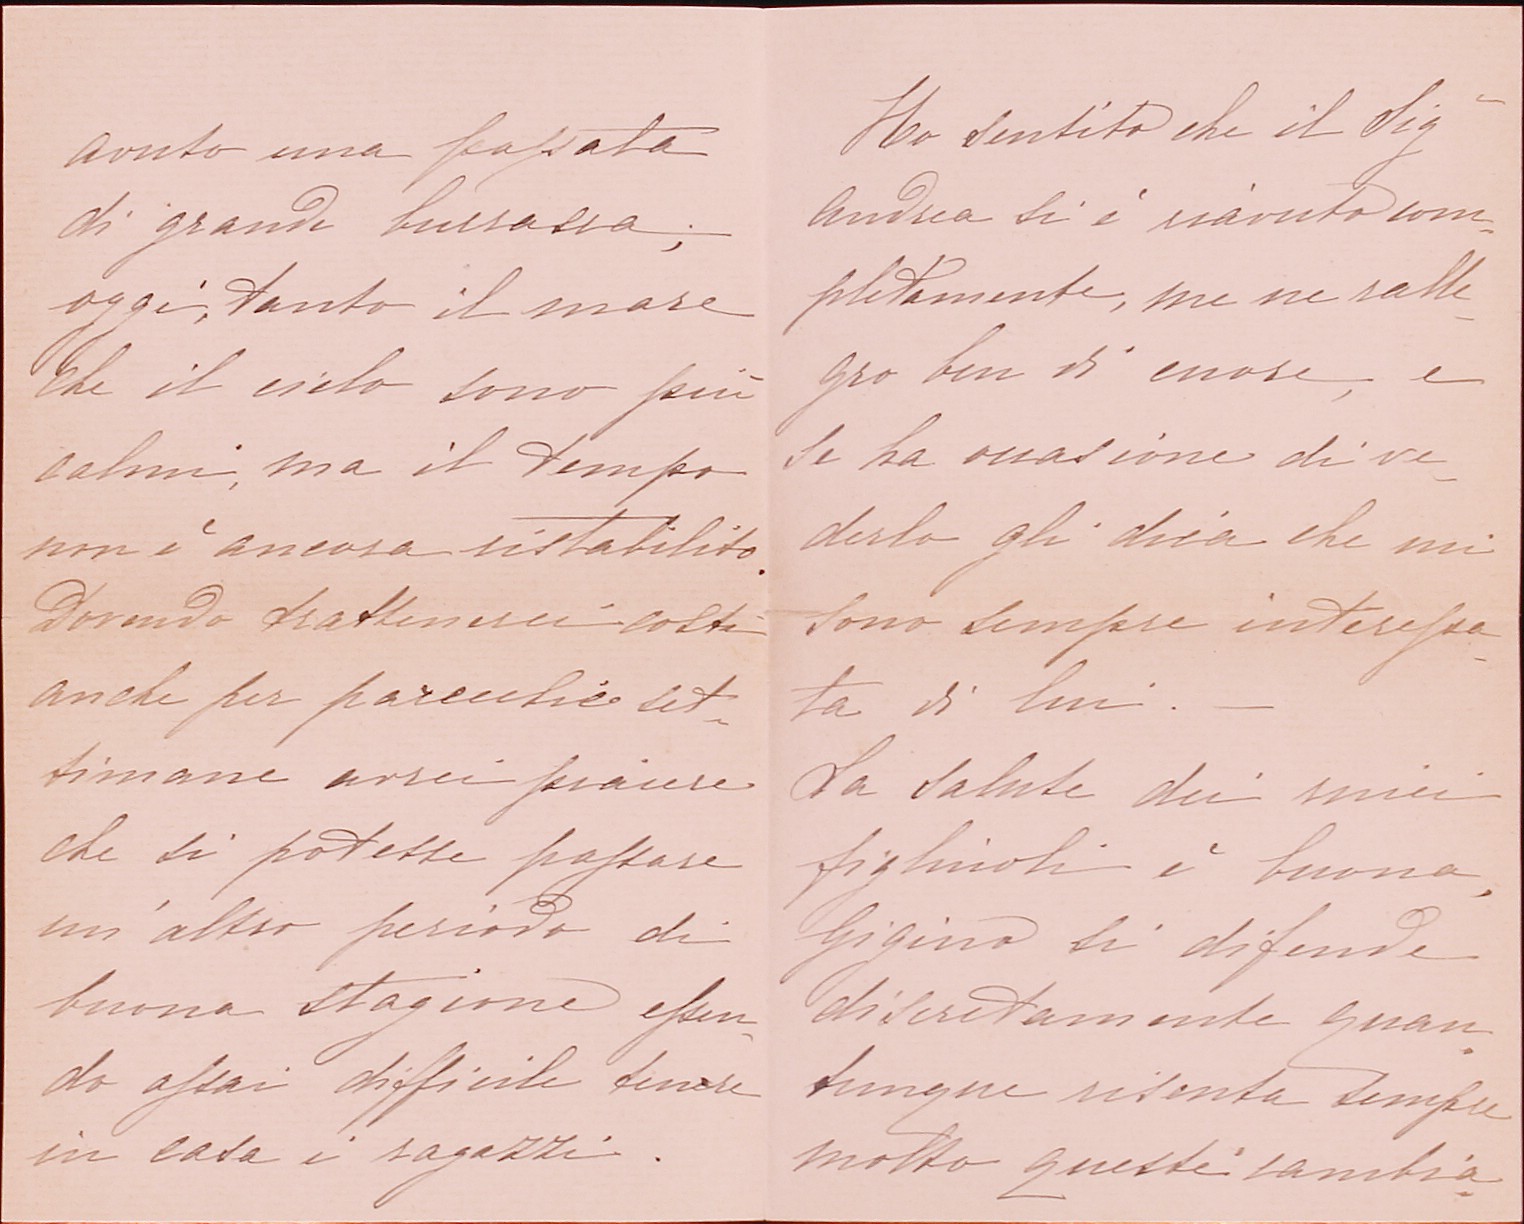 avuto una passata
di grande burrasca;
oggi, tanto il mare
che il cielo sono più
calmi, ma il tempo
non è ancora ristabilito.
Dovendo trattenerci costì
anche per parecchie set-
timane avrei piacere
che si potesse passare
un'altro periodo di
buona stagione essen-
do assai difficile tenere
in casa i ragazzi.
Ho sentito che il Sig
Andrea si è riavuto com-
pletamente, me ne ralle-
gro ben di cuore, e
se ha occasione di ve-
derlo gli dica che mi
sono sempre interessa-
ta di lui. —
La salute dei miei
figliuoli è buona,
Gigino si difende
discretamente quan-
tunque risenta sempre
molto questi cambia-